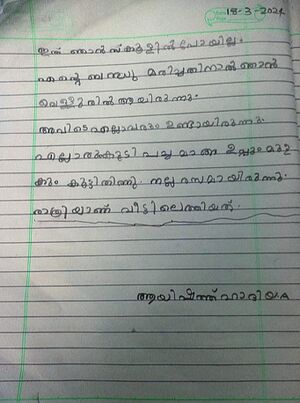 18-3-2024
ഇന്ന് ഞാൻ സ്കൂളിൽ പോയില്ല.
എന്റെ ബന്ധു മരിച്ചതിനാൽ ഞാൻ
വെള്ളൂരിൽ ആയിരുന്നു.
അവിടെ എല്ലാവരും ഉണ്ടായിരുന്നു.
എല്ലാരുംകൂടി പച്ച മാങ്ങ ഉപ്പും മുള
കും കൂട്ടി തിന്നു. നല്ല രസമായിരുന്നു.
രാത്രിയാണ് വീട്ടിലെത്തിയത്.
ആയിഷത്ത് ഹാദിയ.A